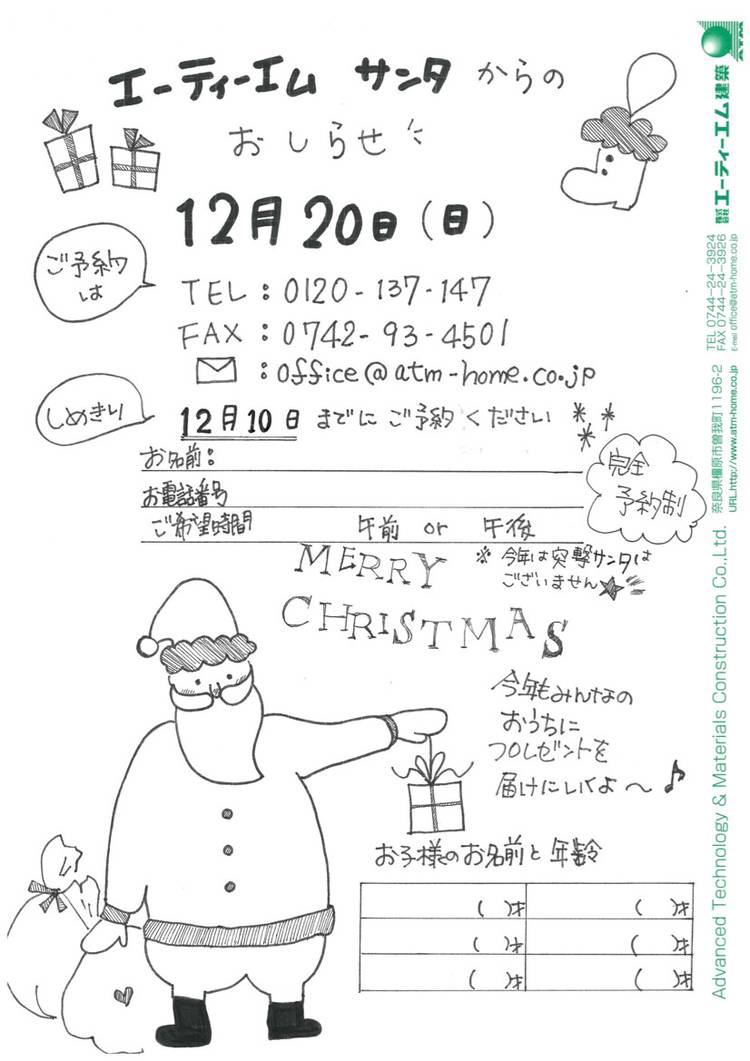 エーティーエム サンタからの
おしらせ
12月20日(日)
ご予約
は
TEL：0120-137-147
FAX：0742-93-4501
：office@atm-home.co.jp
しめきり
12月10日までにご予約ください
お名前：
お電話番号
ご希望時間 午前 or 午後
完全
予約制
※今年は突撃サンタは
ございません
MERRY
CHRISTMAS
今年もみんなの
おうちに
プレゼントを
届けにいくよ〜♪
お子様のお名前と年齢
( )才 ( )才
( )才 ( )才
( )才 ( )才
ATM
株式会社 エーティーエム建築
TEL 0744-24-3924
FAX 0744-24-3926
E-mail office@atm-home.co.jp
奈良県橿原市曽我町1196-2
URL.http://www.atm-home.co.jp
Advanced Technology & Materials Construction Co.,Ltd.